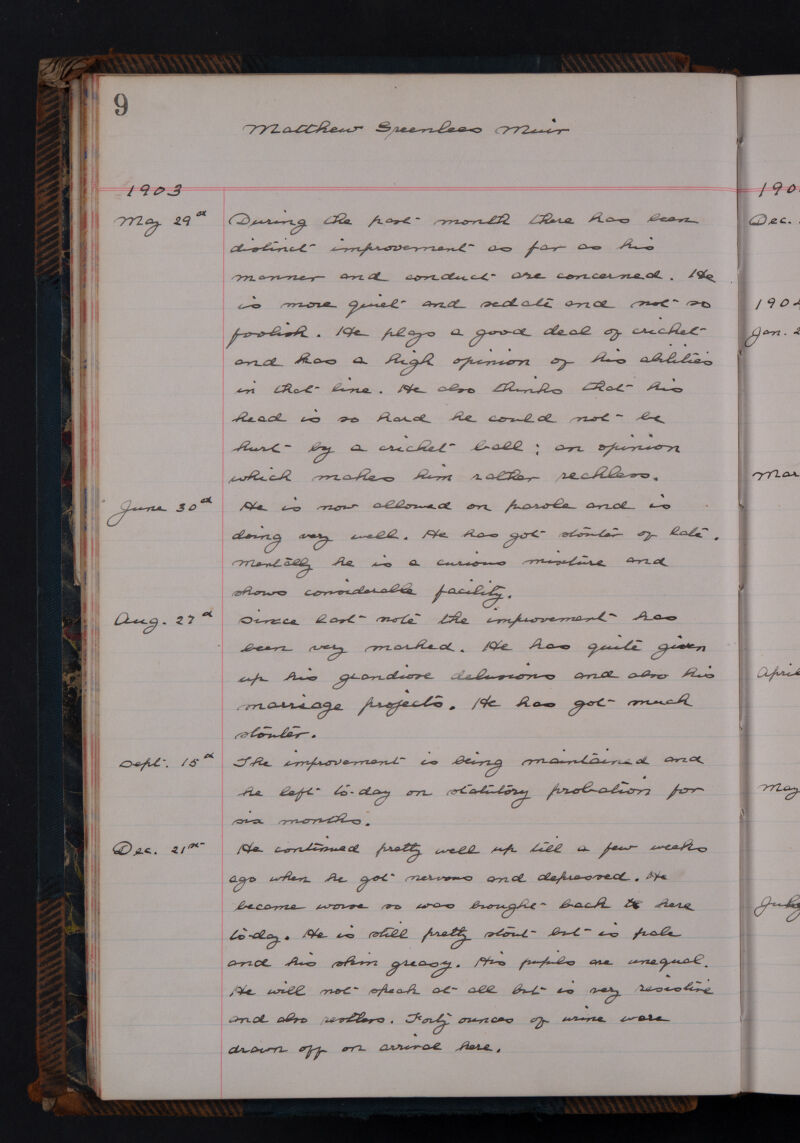 9
Matthew Greenlees Muir
1903
May 29th During the past month there has been
distinct improvement as far as his
manner and conduct are concerned. He
is more quiet and sedate and not so
foolish. He plays a good deal of cricket
and has a high opinion of his abilities
in that line. He also thinks that his
head is so hard he could not be
hurt by a cricket ball; an opinion
which makes him rather reckless.
June 30th He is now allowed on parole and is
doing very well. He has got stouter of late.
Mentally he is a curious mixture and
shows considerable facility.
Aug. 27th Since last note the improvement has
been very marked. He has quite given
up his grandiose delusions and also his
marriage projects. He has got much
stouter.
Sept. 15th The improvement is being maintained and
he left to-day on statutory probation for
six months.
Dec. 21st He continued pretty well up till a few weeks
ago when he got nervous and depressed. He
became worse so was brought back to here
to-day. He is still pretty stout but is pale
and his skin greasy. His pupils are unequal.
He will not speak at all but is very resistive
and also restless. Forty ounces of urine were
drawn off on arrival here.
190
Dec.
190
Jan. 2
Mar
April
May
July